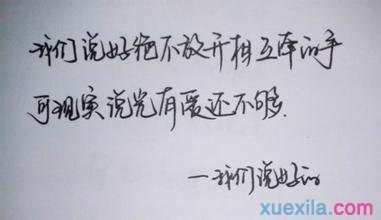 我们说好绝不放开相互牵的手
可现实说光有爱还不够
—我们说好的
xuexila.com